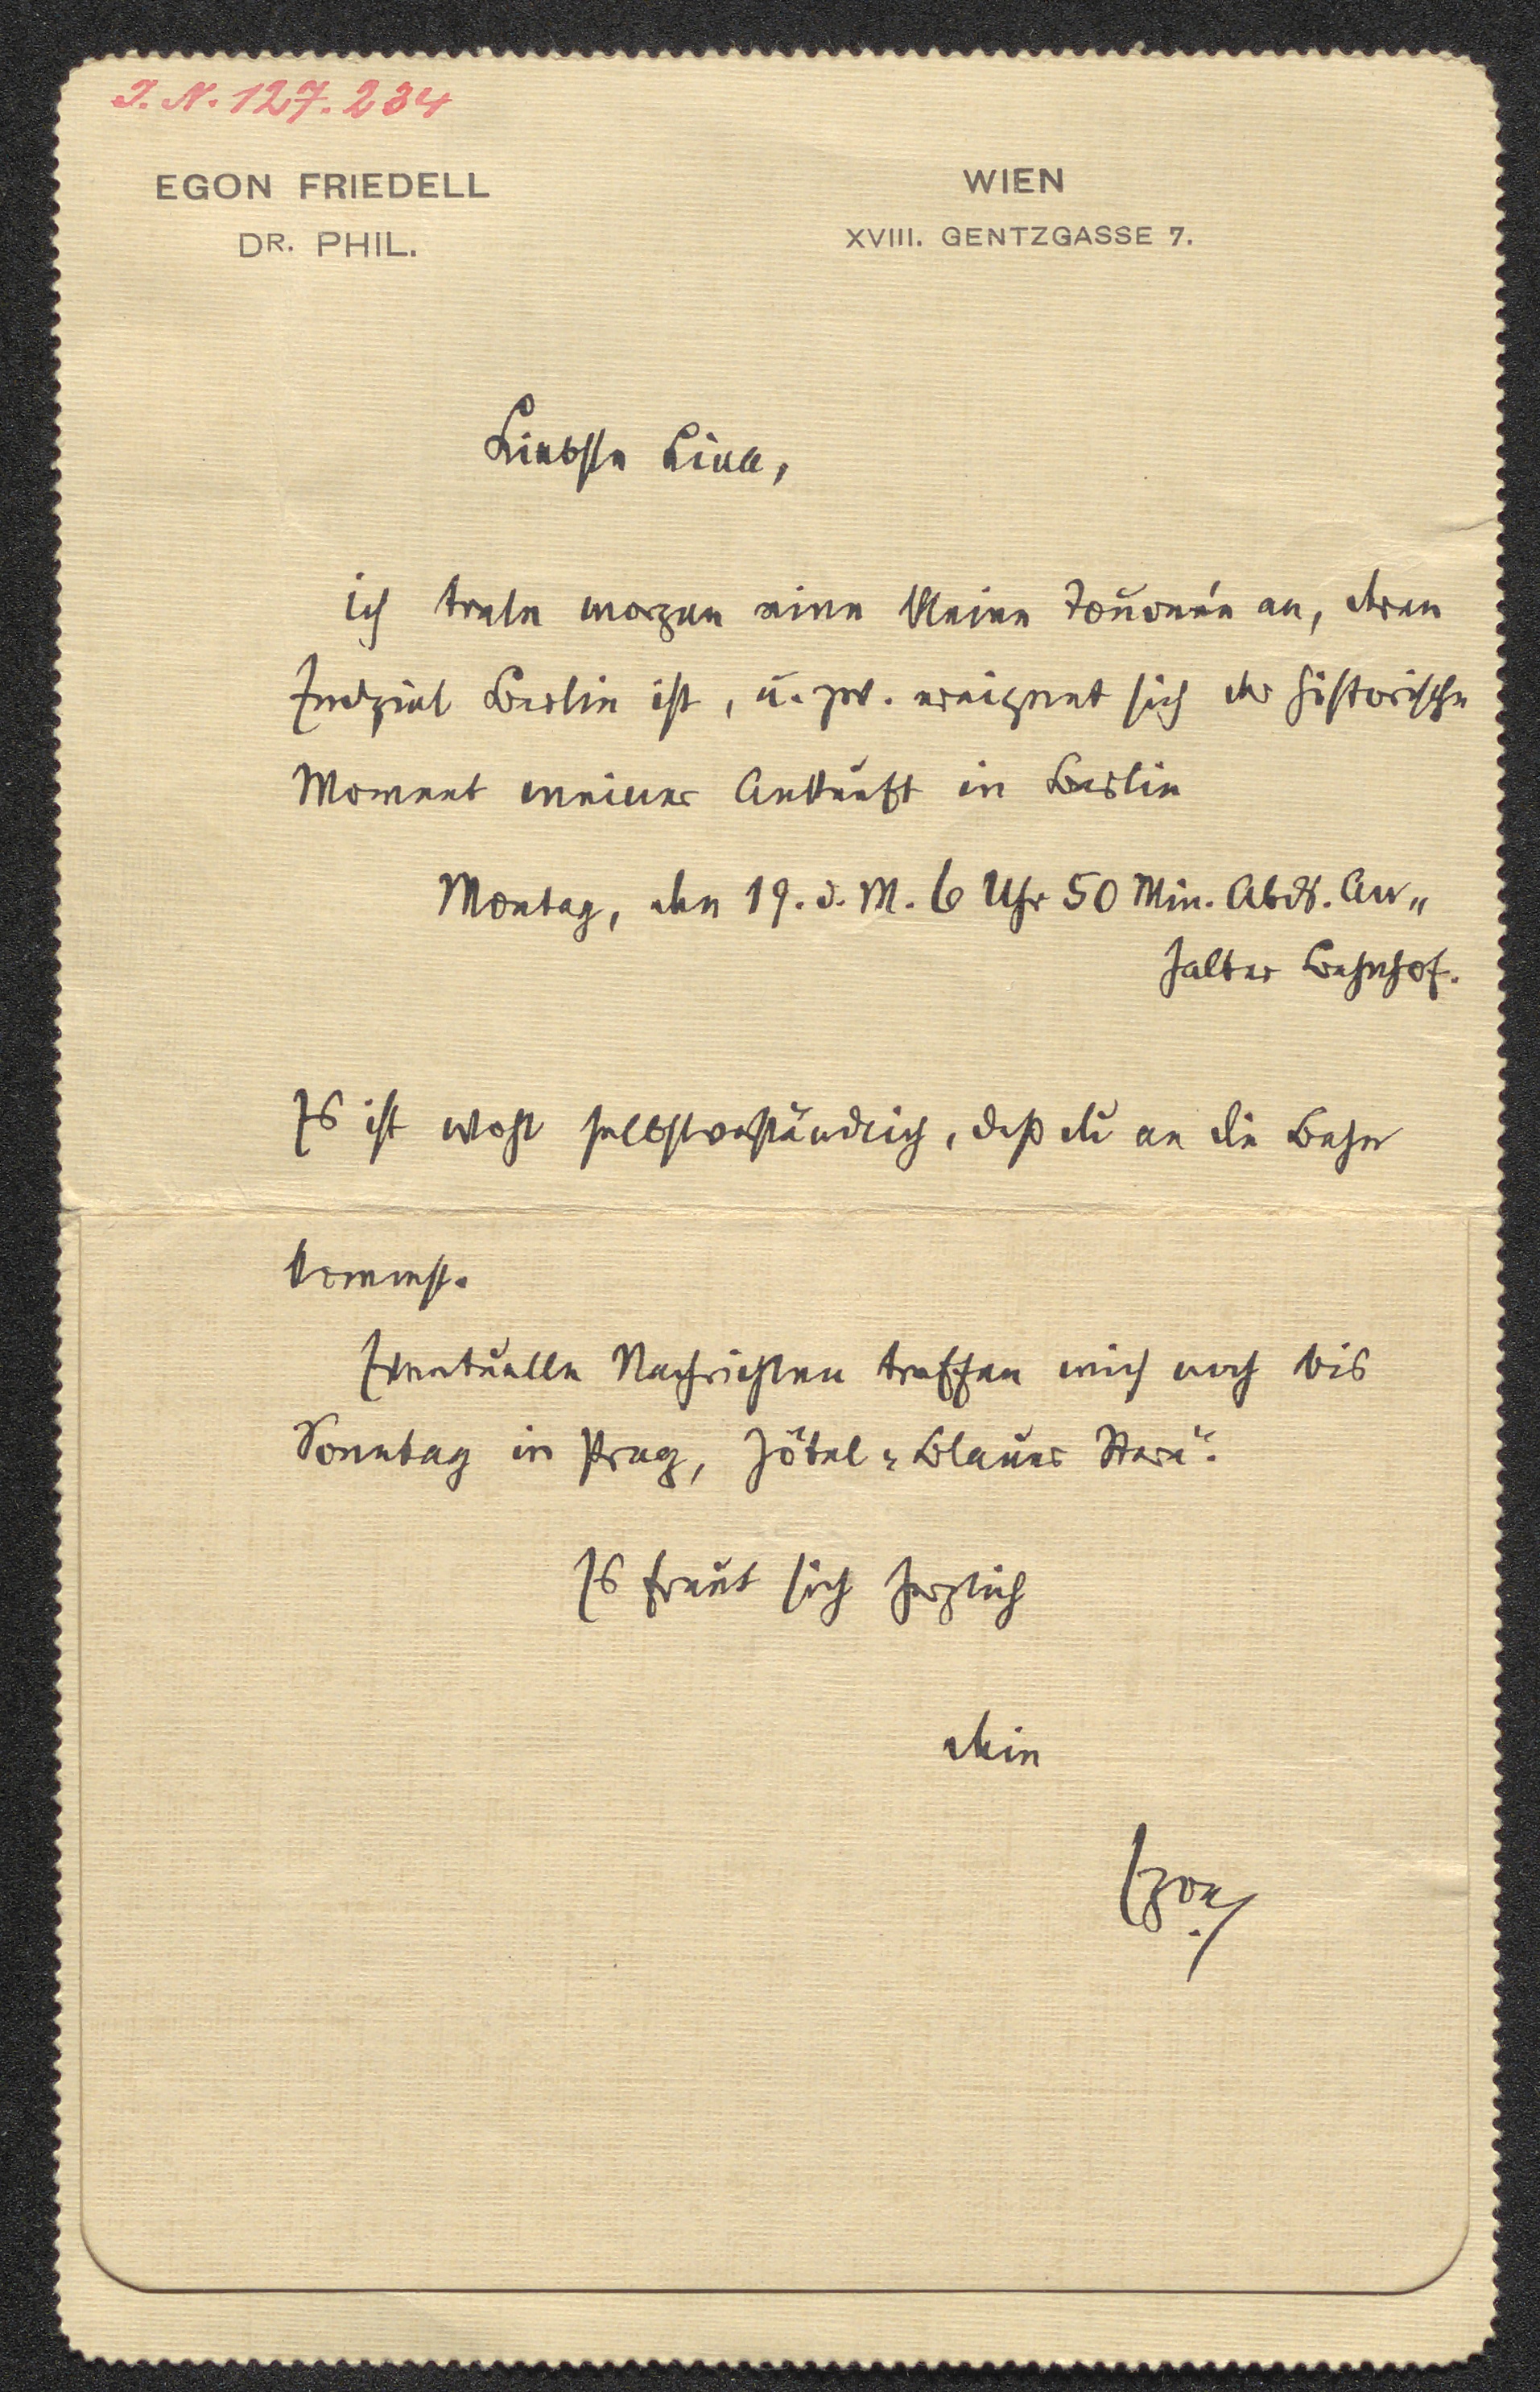 I. N. 127.234
EGON FRIEDELL
DR. PHIL.
WIEN
XVIII. GENTZGASSE 7.
Liebste Lina,
ich trete morgen eine kleine Tournée an, deren
Endziel Berlin ist, u. zw. ereignet sich der historische
Moment meiner Ankunft in Berlin
Montag, den 19. d. M. 6 Uhr 50 Min. Abds. An„
halter Bahnhof.
Es ist wohl selbstverständlich, daß du an die Bahn
kommst.
Eventuelle Nachrichten treffen mich noch bis
Sonntag in Prag, Hôtel „Blauer Stern“.
Es freut sich herzlich
dein
Egon